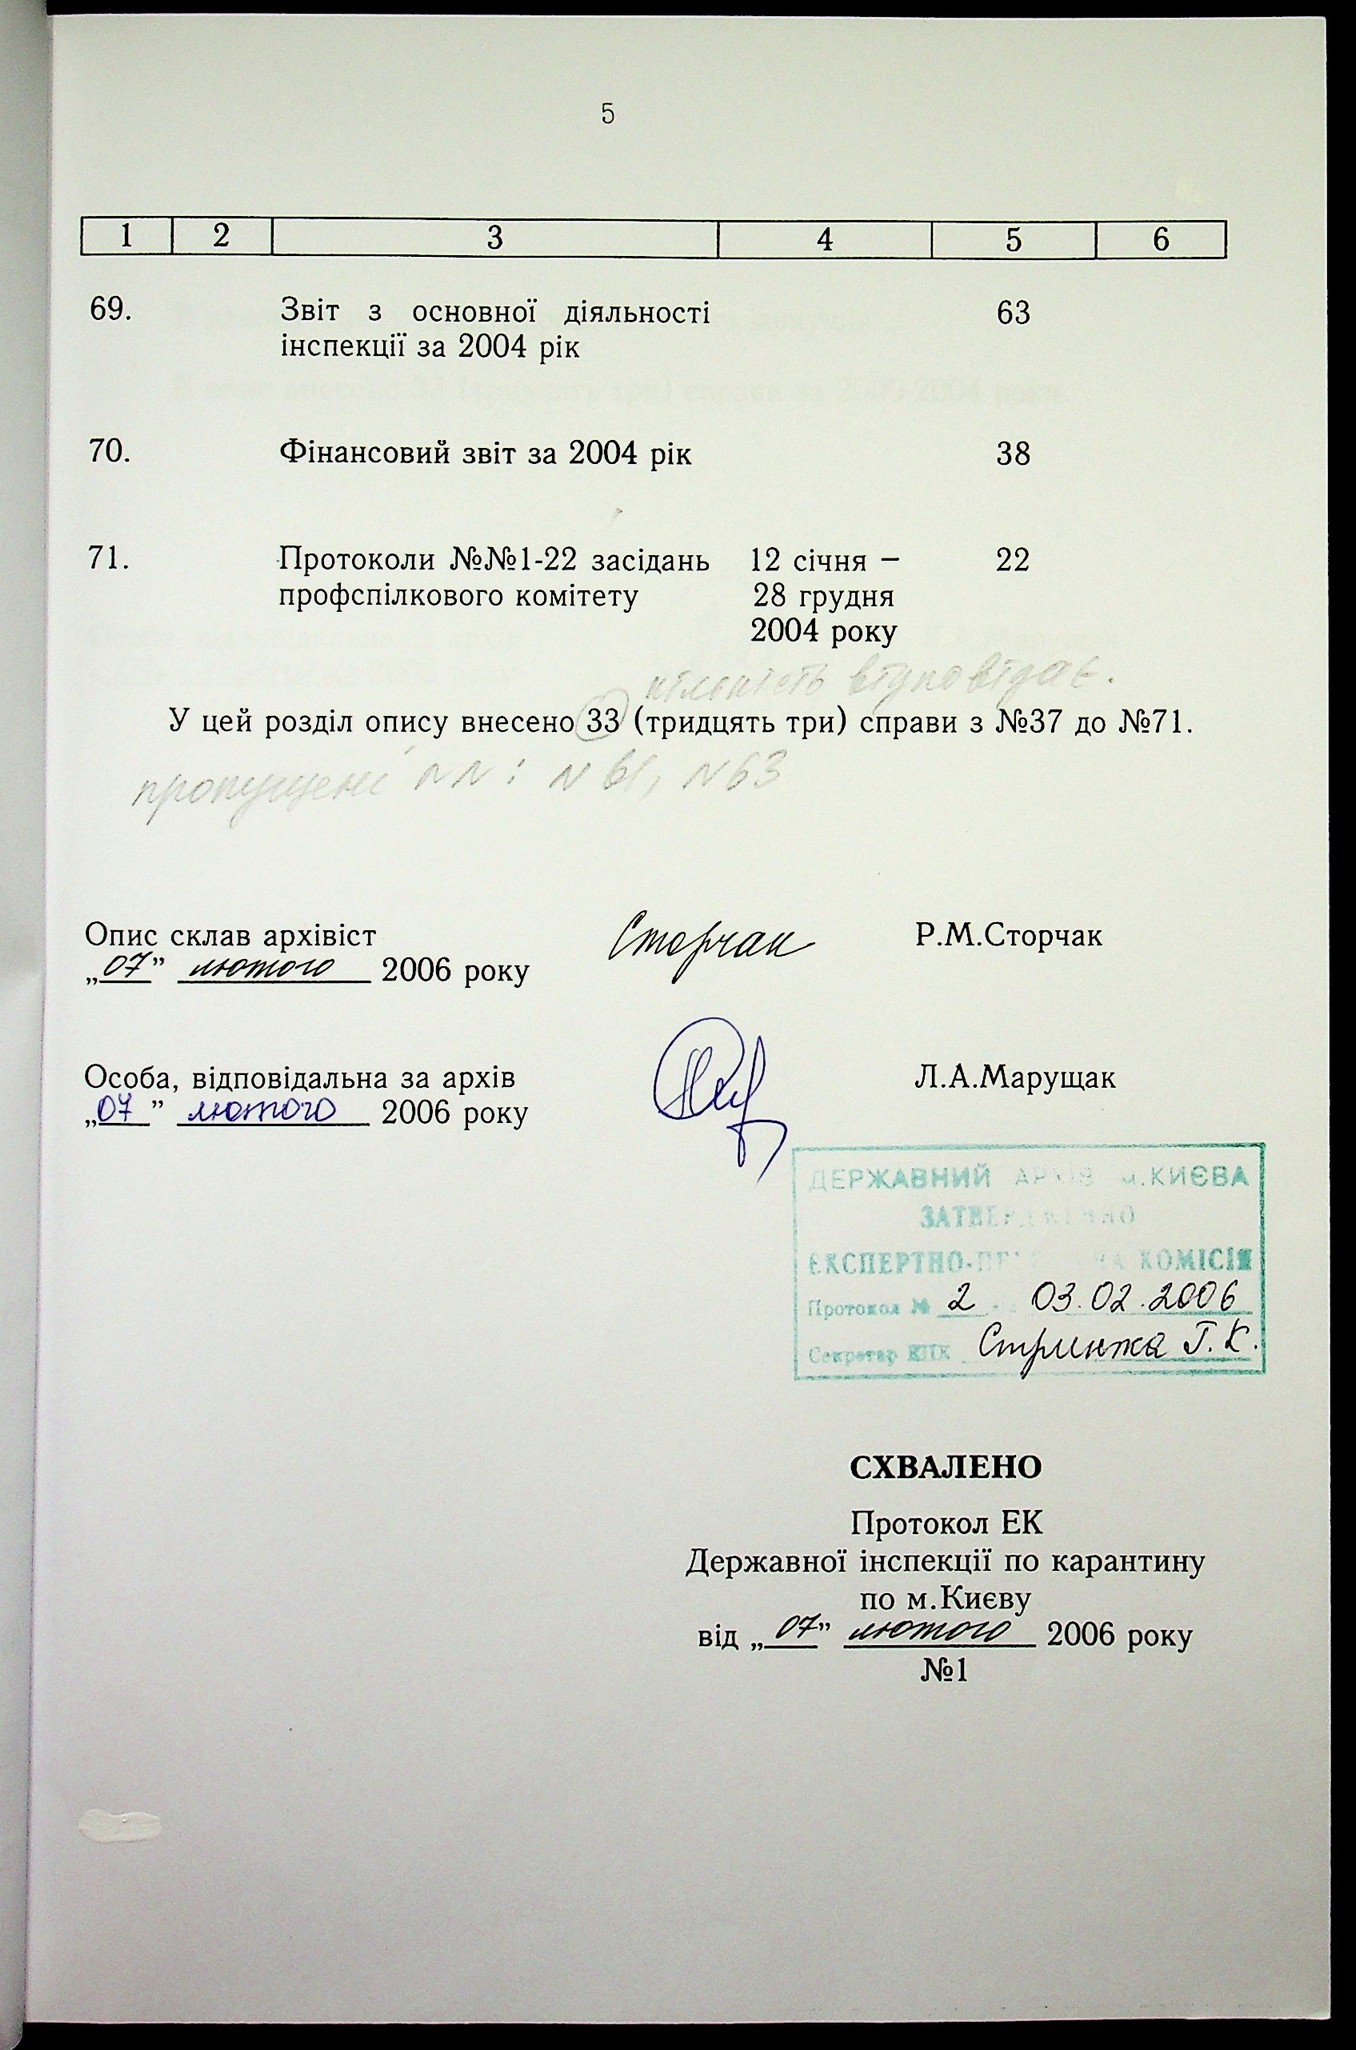 5
1 2 3 4 5 6
69. Звіт з основної діяльності 63
інспекції за 2004 рік
70. Фінансовий звіт за 2004 рік 38
71. Протоколи №№1-22 засідань 12 січня – 22
профспілкового комітету 28 грудня
2004 року
кількість відповідає.
У цей розділ опису внесено 33 (тридцять три) справи з №37 до №71.
пропущені NN: N 61, N 63
Опис склав архівіст Сторчак Р.М.Сторчак
„07” лютого 2006 року
Особа, відповідальна за архів Л.А.Марущак
„07” лютого 2006 року
ДЕРЖАВНИЙ АРХІВ м.КИЄВА
ЗАТВЕРДЖЕНО
ЕКСПЕРТНО- КОМІСІЯ
Протокол № 2 03.02.2006
Секретар ЕПК Г.К.
СХВАЛЕНО
Протокол ЕК
Державної інспекції по карантину
по м.Києву
від „07” лютого 2006 року
№1